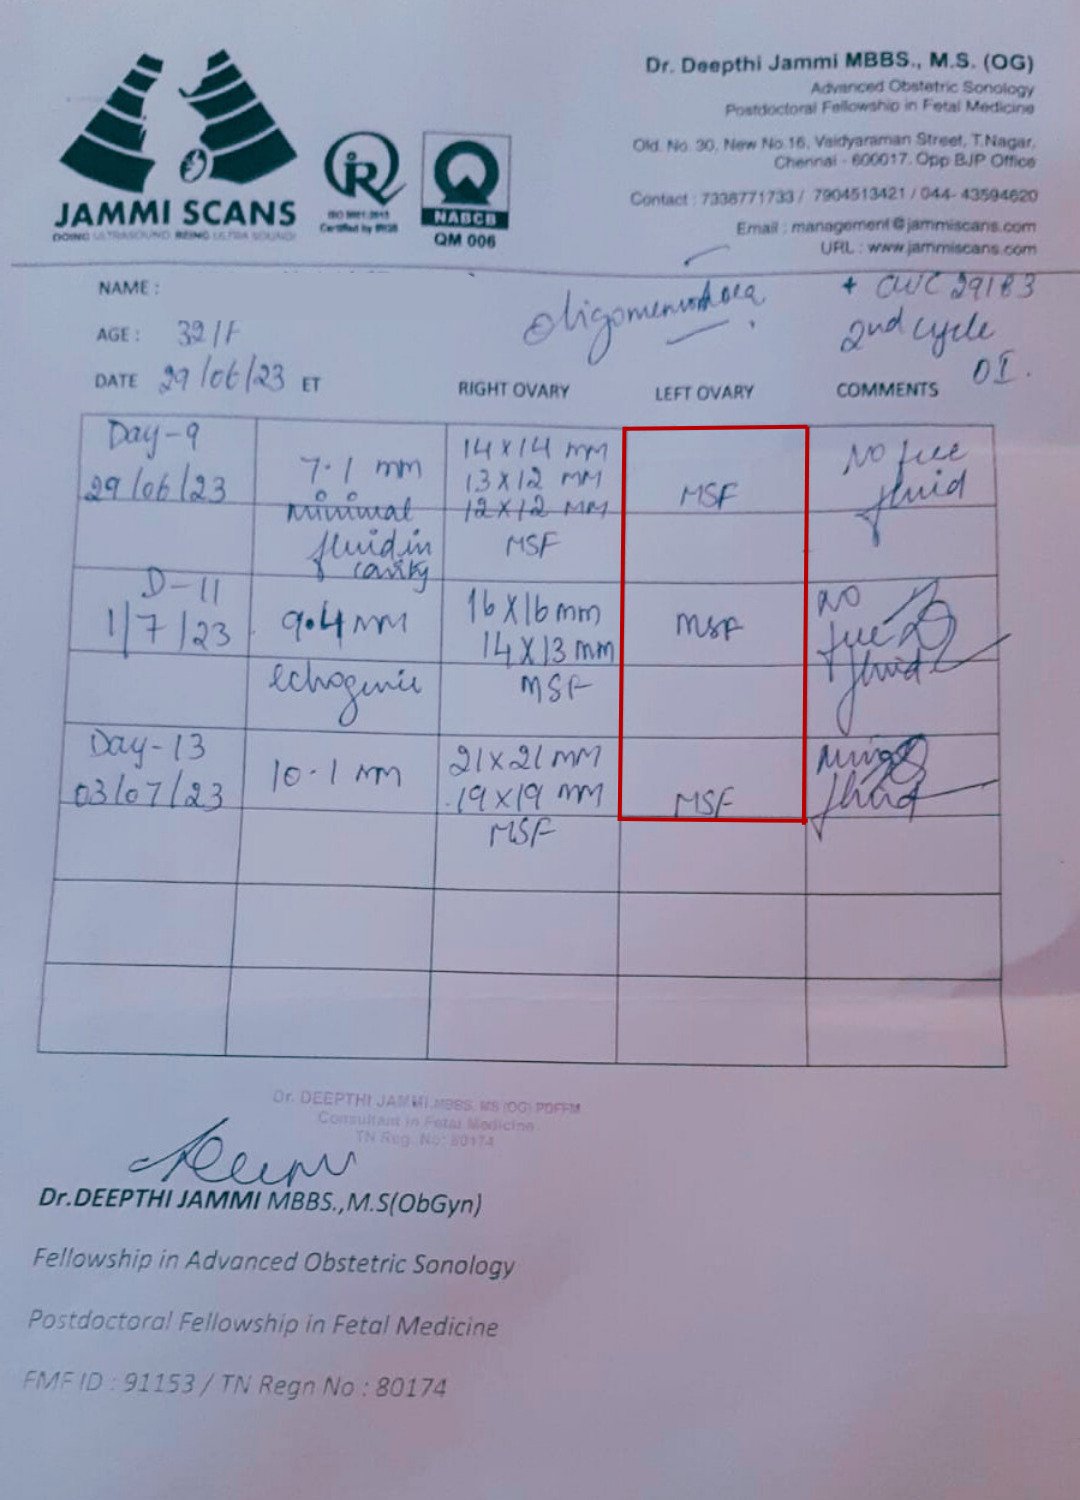 Dr. Deepthi Jammi MBBS., M.S. (OG)
Advanced Obstetric Sonology
Postdoctoral Fellowship in Fetal Medicine
Old. No. 30, New No.16, Vaidyaraman Street, T.Nagar,
Chennai - 600017. Opp BJP Office
Contact : 7338771733 / 7904513421 / 044- 43594620
Email : management@jammiscans.com
URL : www.jammiscans.com
JAMMI SCANS
DOING ULTRASOUND BEING ULTRA SOUND!
IR
ISO 9001:2015
Certified by IRQS
NABCB
QM 006
NAME :
AGE : 32/F
DATE 29/06/23
Oligomenorrhoea
2nd cycle
OI.
ET
RIGHT OVARY
LEFT OVARY
COMMENTS
Day-9
29/06/23
7.1 mm
minimal
fluid in
cavity
14X14 mm
13X12 mm
12X12 mm
MSF
MSF
No free
fluid
D-11
1/7/23
9.4 mm
echogenic
16X16mm
14X13mm
MSF
MSF
no
free
fluid
Day-13
03/07/23
10.1 mm
21X21 mm
19X19 mm
MSF
MSF
fluid
Dr. DEEPTHI JAMMI MBBS, MS (OG) PDFFM
Consultant in Fetal Medicine
TN Reg. No: 80174
Dr.DEEPTHI JAMMI MBBS.,M.S(ObGyn)
Fellowship in Advanced Obstetric Sonology
Postdoctoral Fellowship in Fetal Medicine
FMF ID : 91153 / TN Regn No : 80174